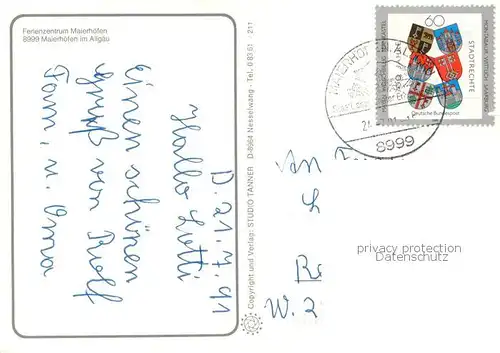 Ferienzentrum Maierhöfen
8999 Maierhöfen im Allgäu
D. 21.7.91
Hallo Lotti
einen schönen
Gruß von Rolf
Tomi, u. Oma
Copyright und Verlag: STUDIO TANNER D-8964 Nesselwang · Tel. 0 83 61 211
60
STADTRECHTE
Deutsche Bundespost
8999
An
L
Re
W. 2
privacy protection
Datenschutz